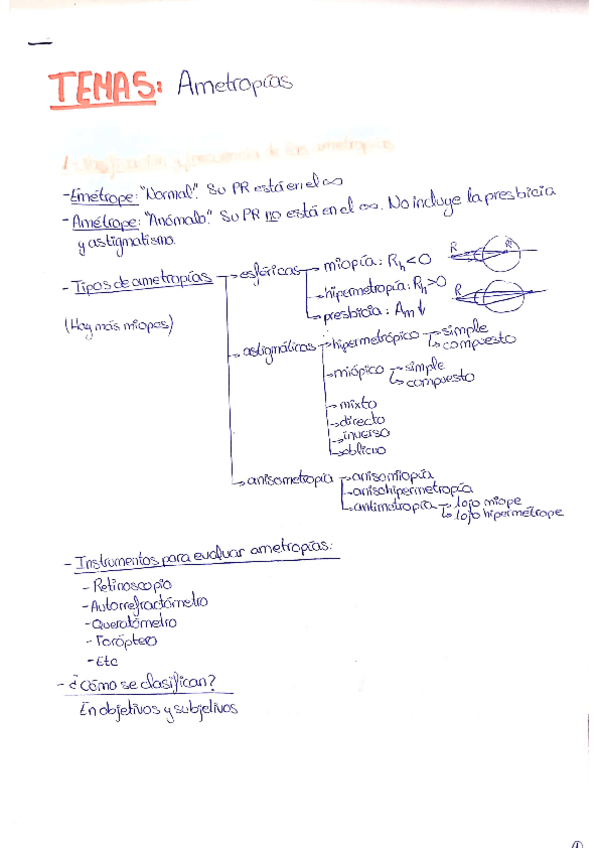 TEMAS: Ametropías
1. Clasificación y frecuencia de las ametropías
- Emétrope: "Normal". Su PR está en el ∞
- Amétrope: "Anómalo". Su PR no está en el ∞. No incluye la presbicia
y astigmatismo.
- Tipos de ametropías → esféricas → miopía: Rh < 0
→ hipermetropía: Rh > 0
→ presbicia: Am ↓
(Hay más miopes)
→ astigmáticas → hipermetrópico → simple
→ compuesto
→ miópico → simple
→ compuesto
→ mixto
→ directo
→ inverso
→ oblicuo
→ anisometropía → anisomiopía
→ anisohipermetropía
→ antimetropía → 1 ojo miope
→ 1 ojo hipermétrope
R R'
R
- Instrumentos para evaluar ametropías:
- Retinoscopio
- Autorrefractómetro
- Queratómetro
- Foróptero
- Etc
- ¿Cómo se clasifican?
En objetivos y subjetivos
1